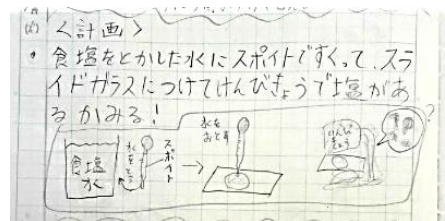 <計画>
・食塩をとかした水にスポイトですくって、スラ
イドガラスにつけてけんびきょうで塩があ
るかみる!
食塩
水
水をとる
スポイト
水を
おとす
けんび
きょう
?